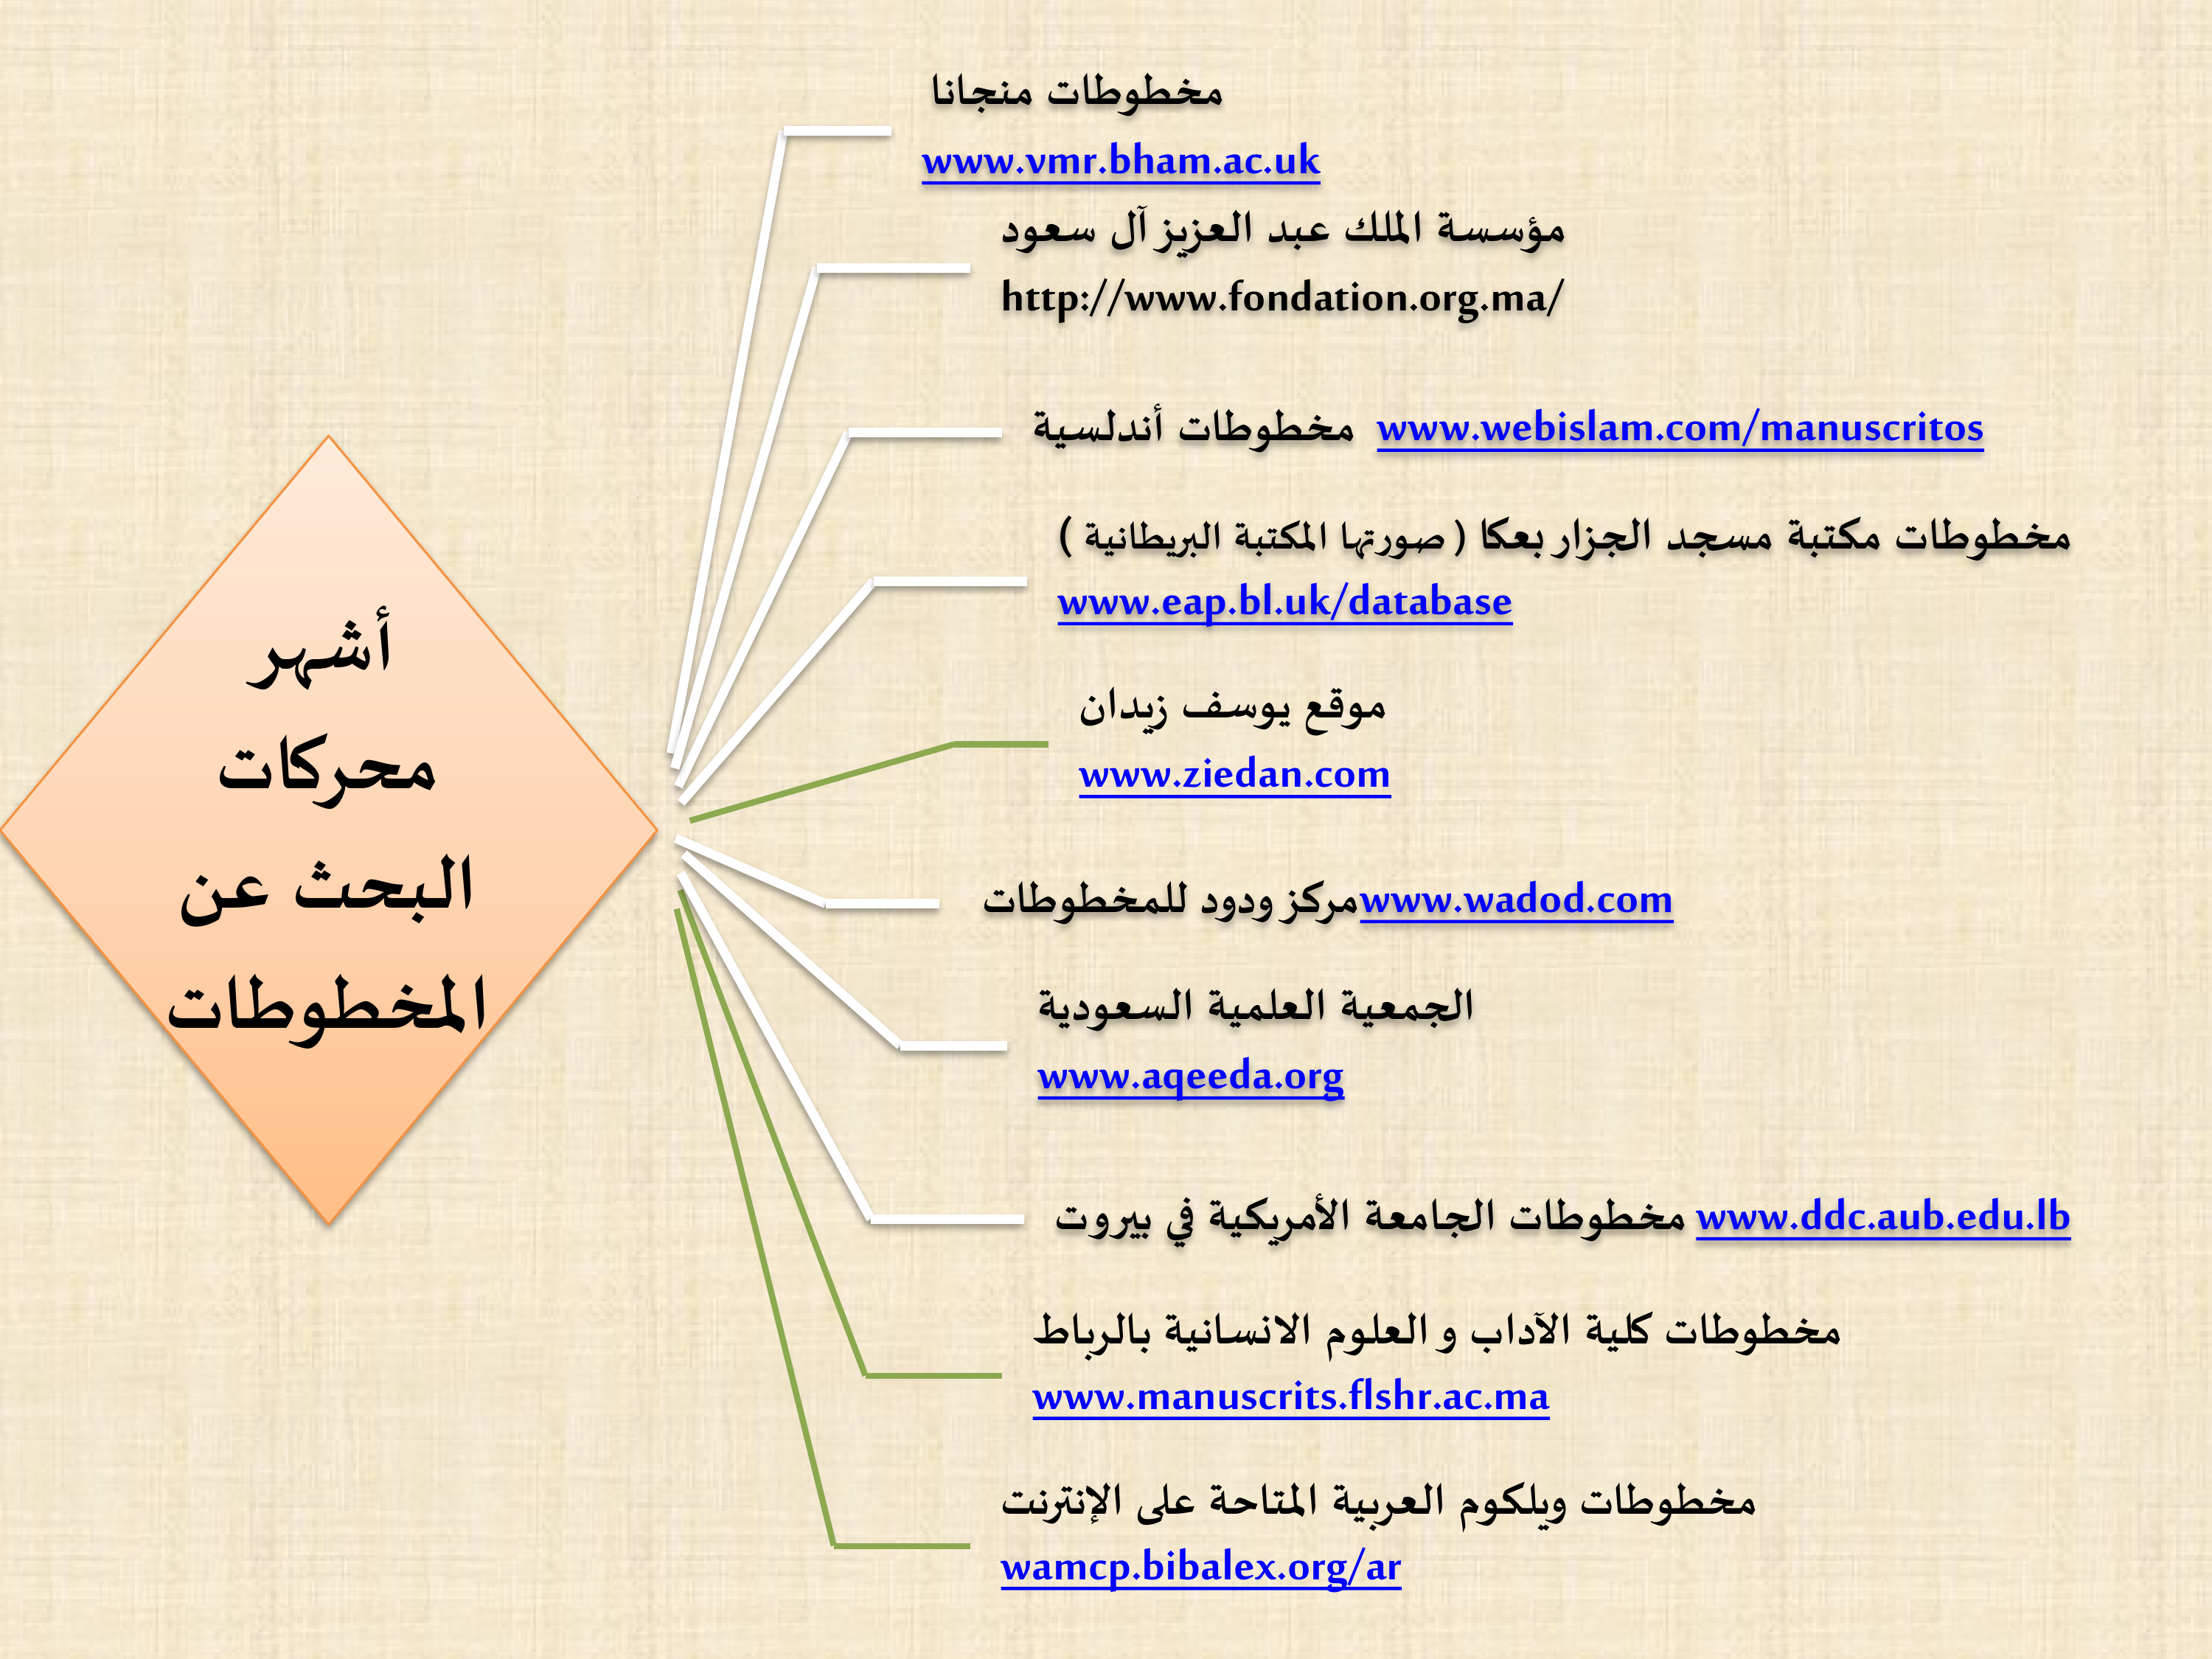 أشهر
محركات
البحث عن
المخطوطات
مخطوطات منجانا
www.vmr.bham.ac.uk
مؤسسة الملك عبد العزيز آل سعود
http://www.fondation.org.ma/
مخطوطات أندلسية www.webislam.com/manuscritos
مخطوطات مكتبة مسجد الجزار بعكا ( صورتها المكتبة البريطانية )
www.eap.bl.uk/database
موقع يوسف زيدان
www.ziedan.com
مركز ودود للمخطوطات www.wadod.com
الجمعية العلمية السعودية
www.aqeeda.org
مخطوطات الجامعة الأمريكية في بيروت www.ddc.aub.edu.lb
مخطوطات كلية الآداب و العلوم الانسانية بالرباط
www.manuscrits.flshr.ac.ma
مخطوطات ويلكوم العربية المتاحة على الإنترنت
wamcp.bibalex.org/ar